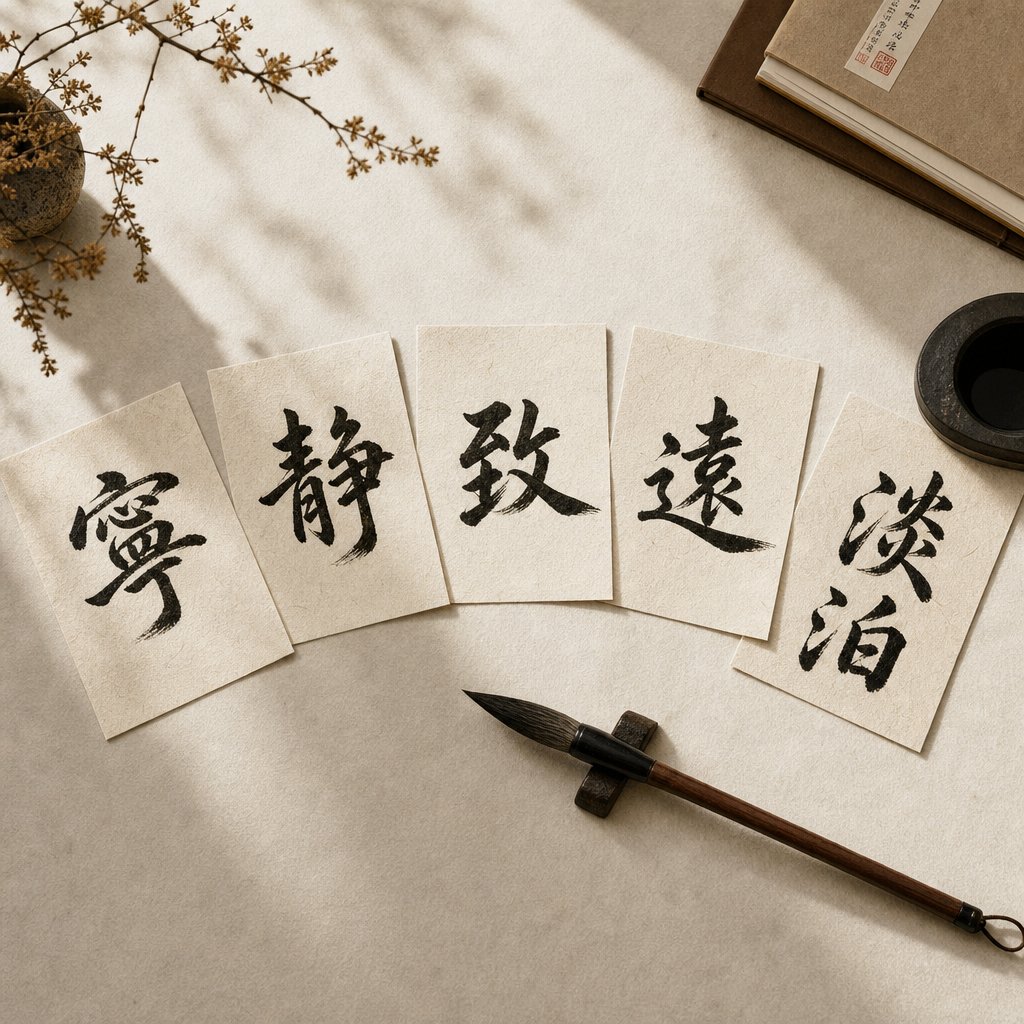 寧
静
致
遠
淡
泊